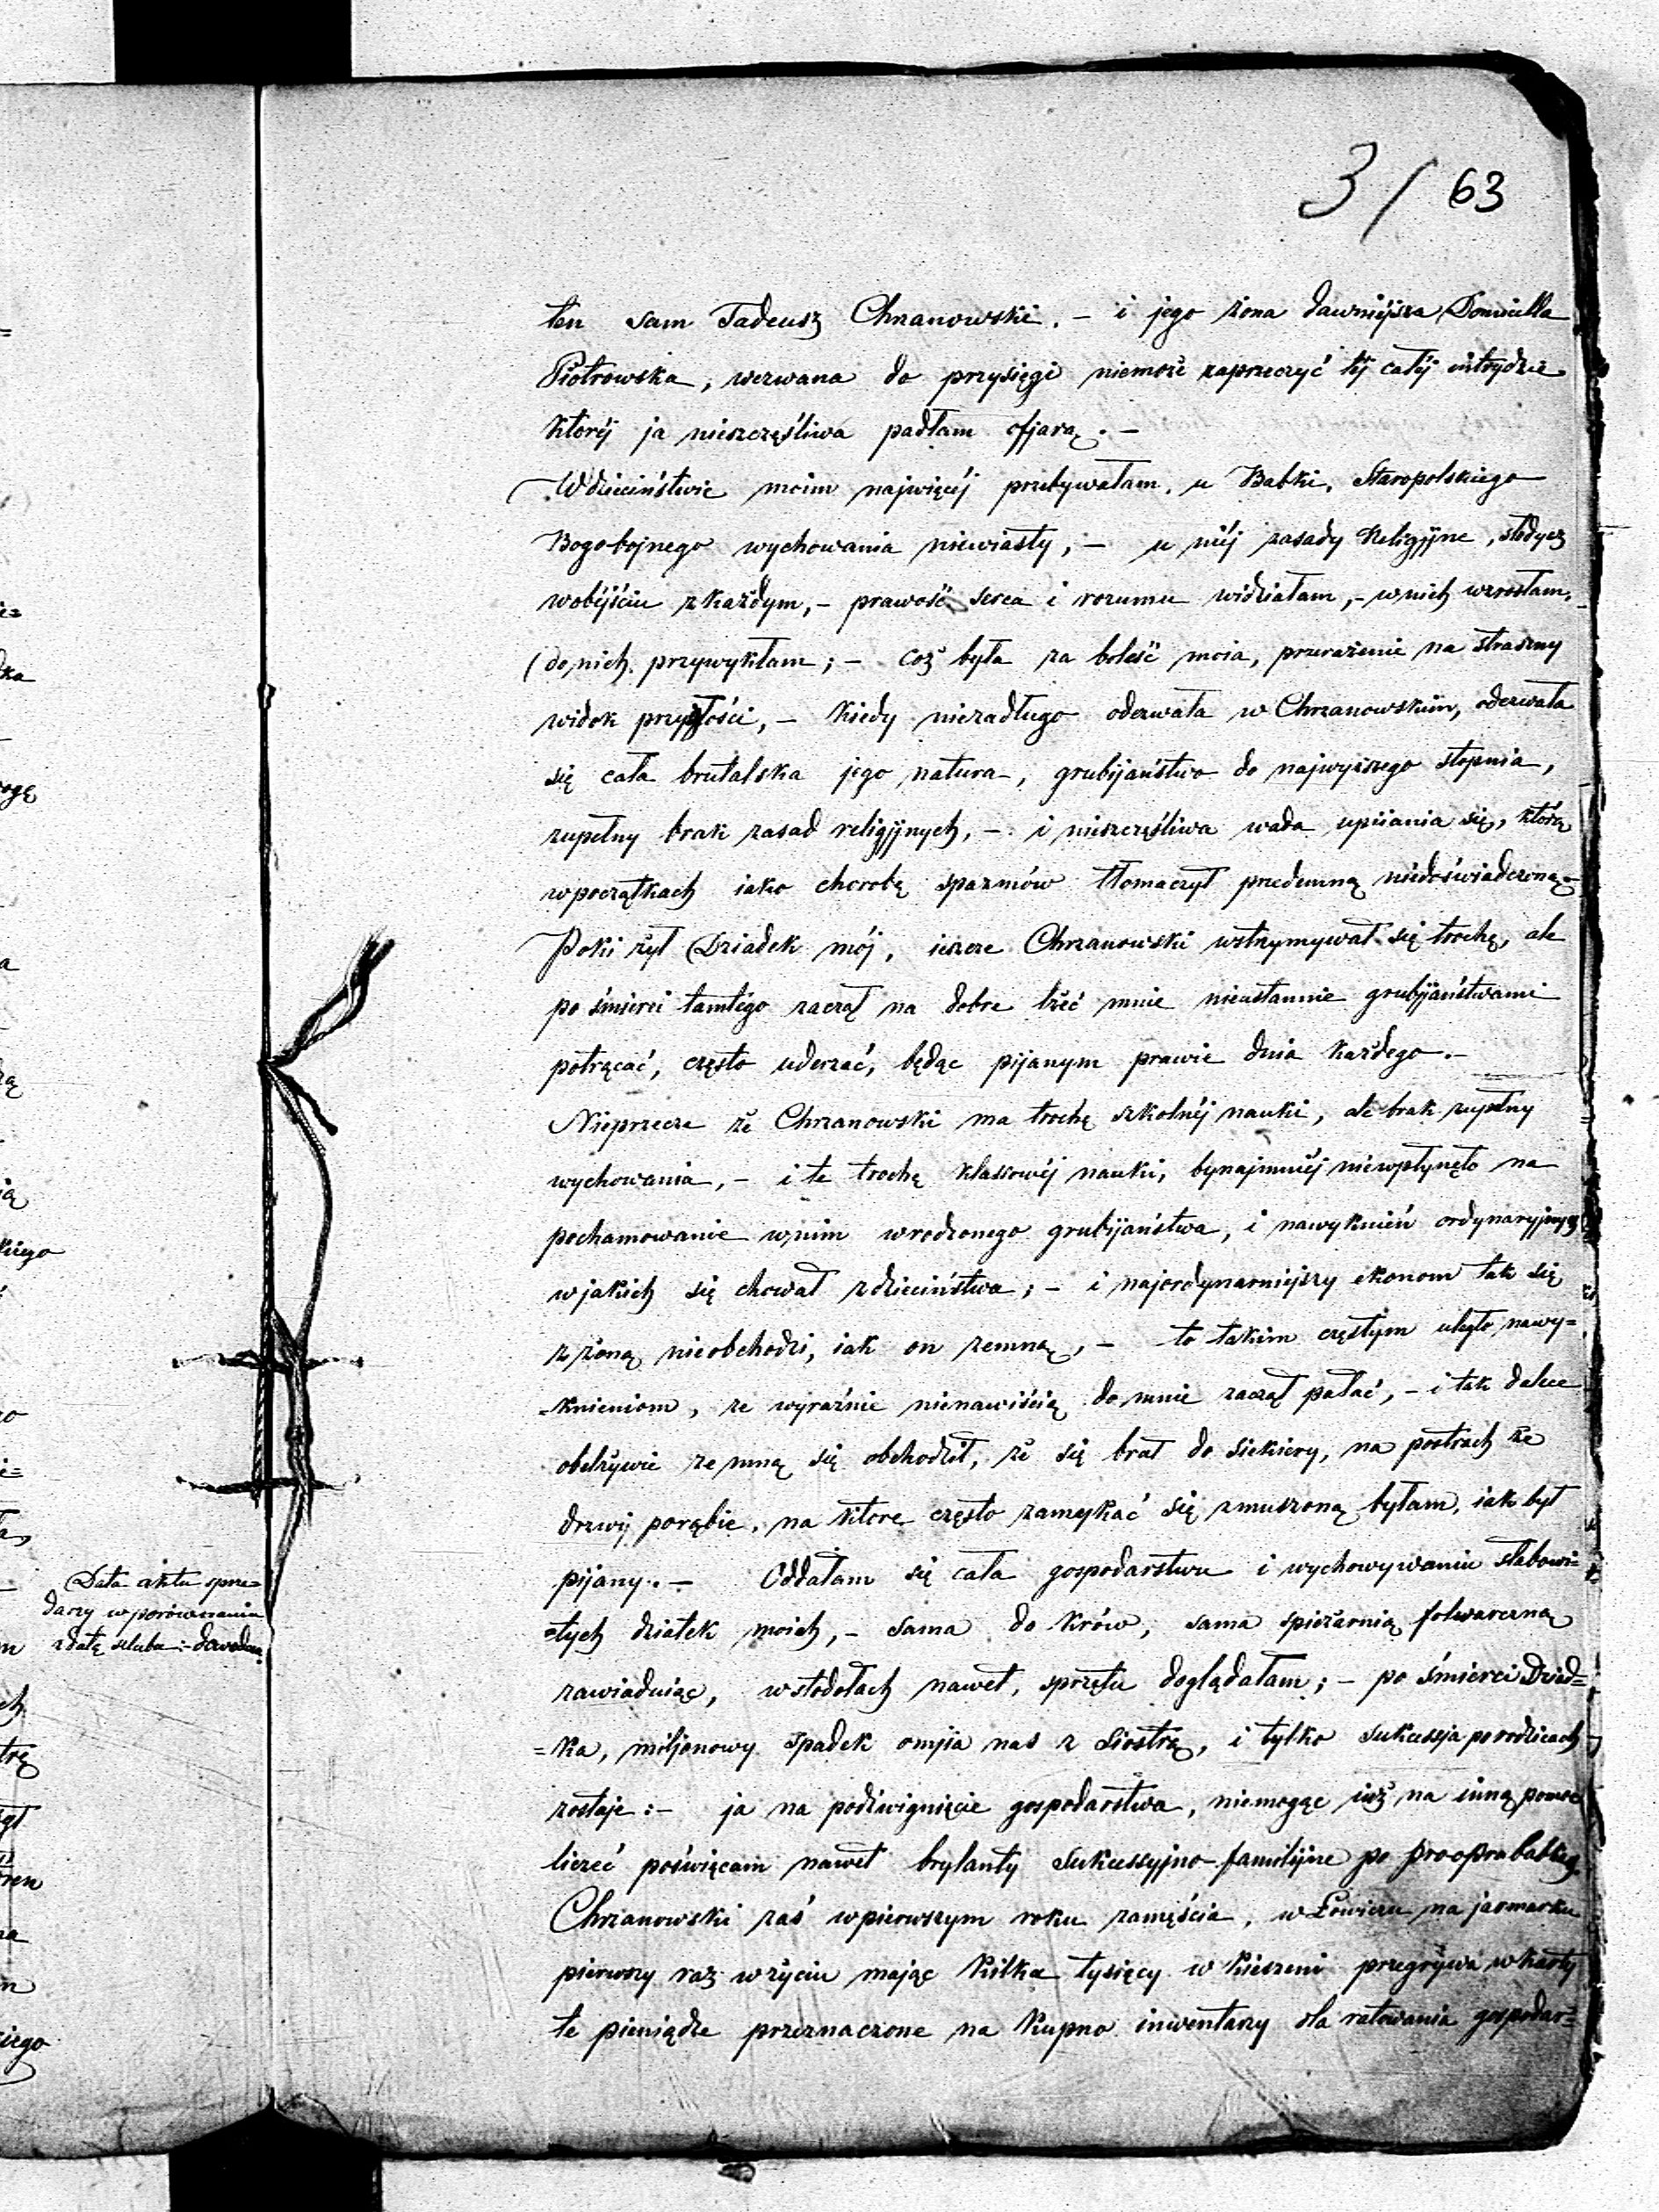 3/ 63
ten sam Tadeusz Chrzanowski. – i jego żona dawniéjsza Domicella
Piotrowska, wezwana do przysięgi niemoże zaprzeczyć téj całéj intrydze
któréj ja nieszczęśliwa padłam ofjarą. –
Wdzieciństwie moim najwięcéj przebywałam, u Babki, Staropolskiego
Bogobojnego wychowania niewiasty, – u niéj zasady Religijne, słodycz
wobéjściu zkażdym, – prawość serca i rozumu widziałam, – wnich wzrosłam,
do nich przywykłam; – coż była za boleść moia, przerażenie na straszny
widok przyszłości, – kiedy niezadługo oderwała w Chrzanowskim, oderwała
się cała brutalska jego natura, grubijaństwo do najwyższego stopnia,
zupełny brak zasad religijnych, – i nieszczęśliwa wada upiiania się, którą
wpoczątkach iako chorobę spazmów tłomaczył przedemną niedoświadczoną. –
Poki żył Dziadek mój, ieszcze Chrzanowski wstrzymywał się trochę, ale
po śmierci tamtégo zaczął na dobre lżeć mnie nieustannie grubijaństwami
potrącać, często uderzać, będąc pijanym prawie dnia każdego. –
Nieprzecze że Chrzanowski ma trochę szkolnéj nauki, ale brak zupełny
wychowania, – i te trochę klassowéj nauki, bynajmniéj niewpłynęło na
pochamowanie wnim wrodzonego grubijaństwa, i nawyknień ordynaryjnych
wjakich się chował zdzieciństwa; – i najordynarniejszy ekonom tak się
z żoną nieobchodzi, iak on zemną, – to takim częstym uległo nawy=
=knieniom, że wyraźnie nienawiścią do mnie zaczął pałać, – i tak dalece
obelżywie ze mną się obchodził, że się brał do siekiery, na postrach że
drzwij porąbie, na które często zamykać się zmuszoną byłam, iak był
pijany. – Oddałam się cała gospodarstwu i wychowywaniu słabowi=
=tych dziatek moich, – sama do krów, sama spiżarnią folwarczną
zawiaduiąc, wstodołach nawet, sprzętu doglądałam; – po śmierci Dziad=
=ka, miljonowy spadek omija nas z Siostrą, i tylko sukcessja po rodzicach
zostaje: – ja na podźwignięcie gospodarstwa, niemogąc iuż na inną pomoc
liczeć poświęcam nawet brylanty Sukcessyjno-familijne po pra-prababkuy
Chrzanowski zaś wpierwszym roku zamęścia, w Łowiczu na jarmarku
pierwszy raz wżyciu mając kilka tysięcy w kieszeni przegrywa wkarty
te pieniądze przeznaczone na kupno inwentarzy dla ratowania gospodar=
Data aktu sprze=
daży wporównaniu
zdatą szlubu :-dowodem